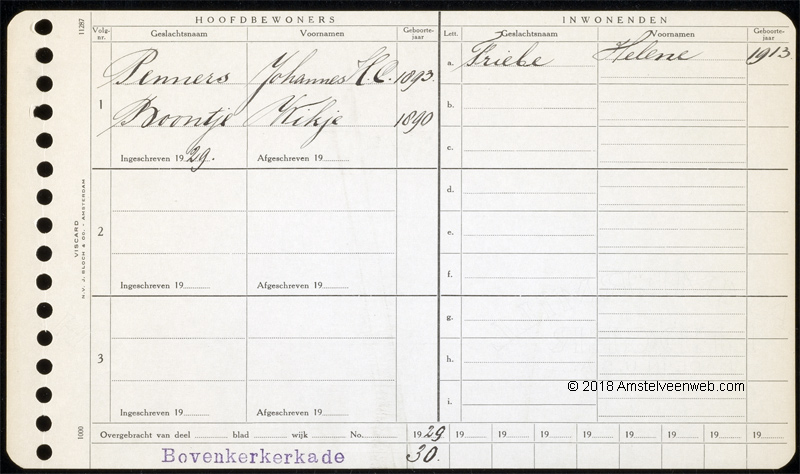 HOOFDBEWONERS INWONENDEN
Volg-nr. Geslachtsnaam Voornamen Geboorte-jaar Lett. Geslachtsnaam Voornamen Geboorte-jaar
Penners Johannes H.C. 1893. a. Friebe Helene 1913
1 Boontje Wihje 1890 b.
Ingeschreven 1929. Afgeschreven 19 c.
d.
2 e.
Ingeschreven 19 Afgeschreven 19 f.
g.
3 h.
© 2018 Amstelveenweb.com
Ingeschreven 19 Afgeschreven 19 i.
Overgebracht van deel blad wijk No. 1929 19 19 19 19 19 19 19 19
Bovenkerkerkade 30.
11287
VISCARD
N.V. J. BLOCH & CO. - AMSTERDAM
1000